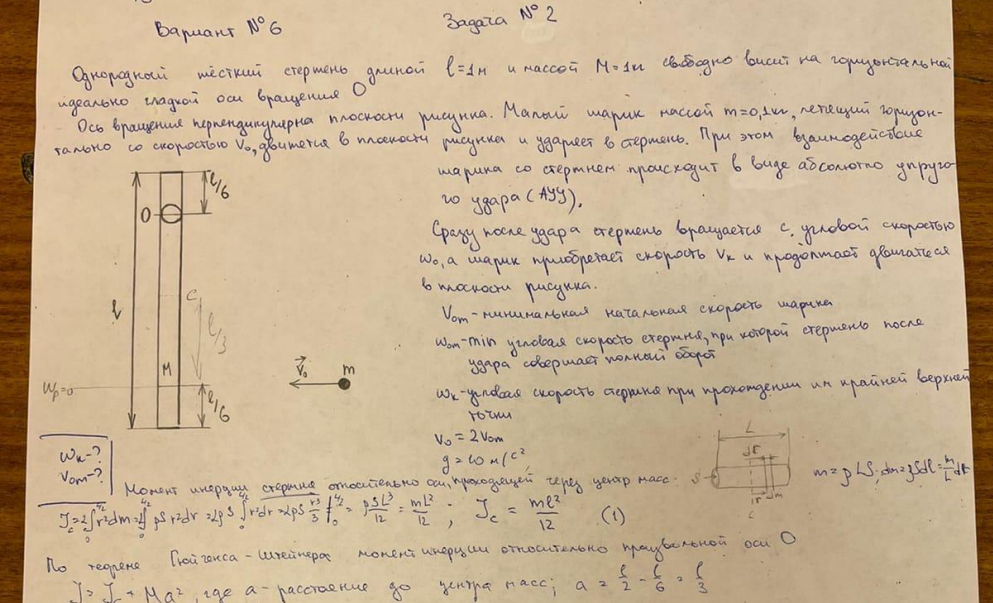 Вариант №6
Задача №2
Однородный жёсткий стержень длиной l=1м и массой M=1кг свободно висит на горизонтальной
идеально гладкой оси вращения O
Ось вращения перпендикулярна плоскости рисунка. Малый шарик массой m=0,1кг, летящий горизон-
тально со скоростью V₀, движется в плоскости рисунка и ударяет в стержень. При этом взаимодействие
шарика со стержнем происходит в виде абсолютно упруго-
го удара (АУУ).
Сразу после удара стержень вращается с угловой скоростью
ω₀, а шарик приобретает скорость Vк и продолжает двигаться
в плоскости рисунка.
V₀m - минимальная начальная скорость шарика
ω₀m - min угловая скорость стержня, при которой стержень после
удара совершает полный оборот
ωк - угловая скорость стержня при прохождении им крайней верхней
точки
V₀ = 2V₀m
g = 10 м/с²
l/6
O
l
C
l/3
M
Wp=0
l/6
V₀
m
ωк-?
V₀m-?
L
dr
S
r
dm
m = ρLS; dm = ρSdl = m/L dl
Момент инерции стержня относительно оси, проходящей через центр масс:
Jc = 2∫r²dm = 2∫ρSr²dr = 2ρS∫r²dr = 2ρS r³/3 |₀ = ρSL³/12 = mL²/12; Jc = ml²/12 (1)
По теореме Гюйгенса-Штейнера момент инерции относительно произвольной оси O
J = Jc + Ma², где a - расстояние до центра масс; a = l/2 - l/6 = l/3